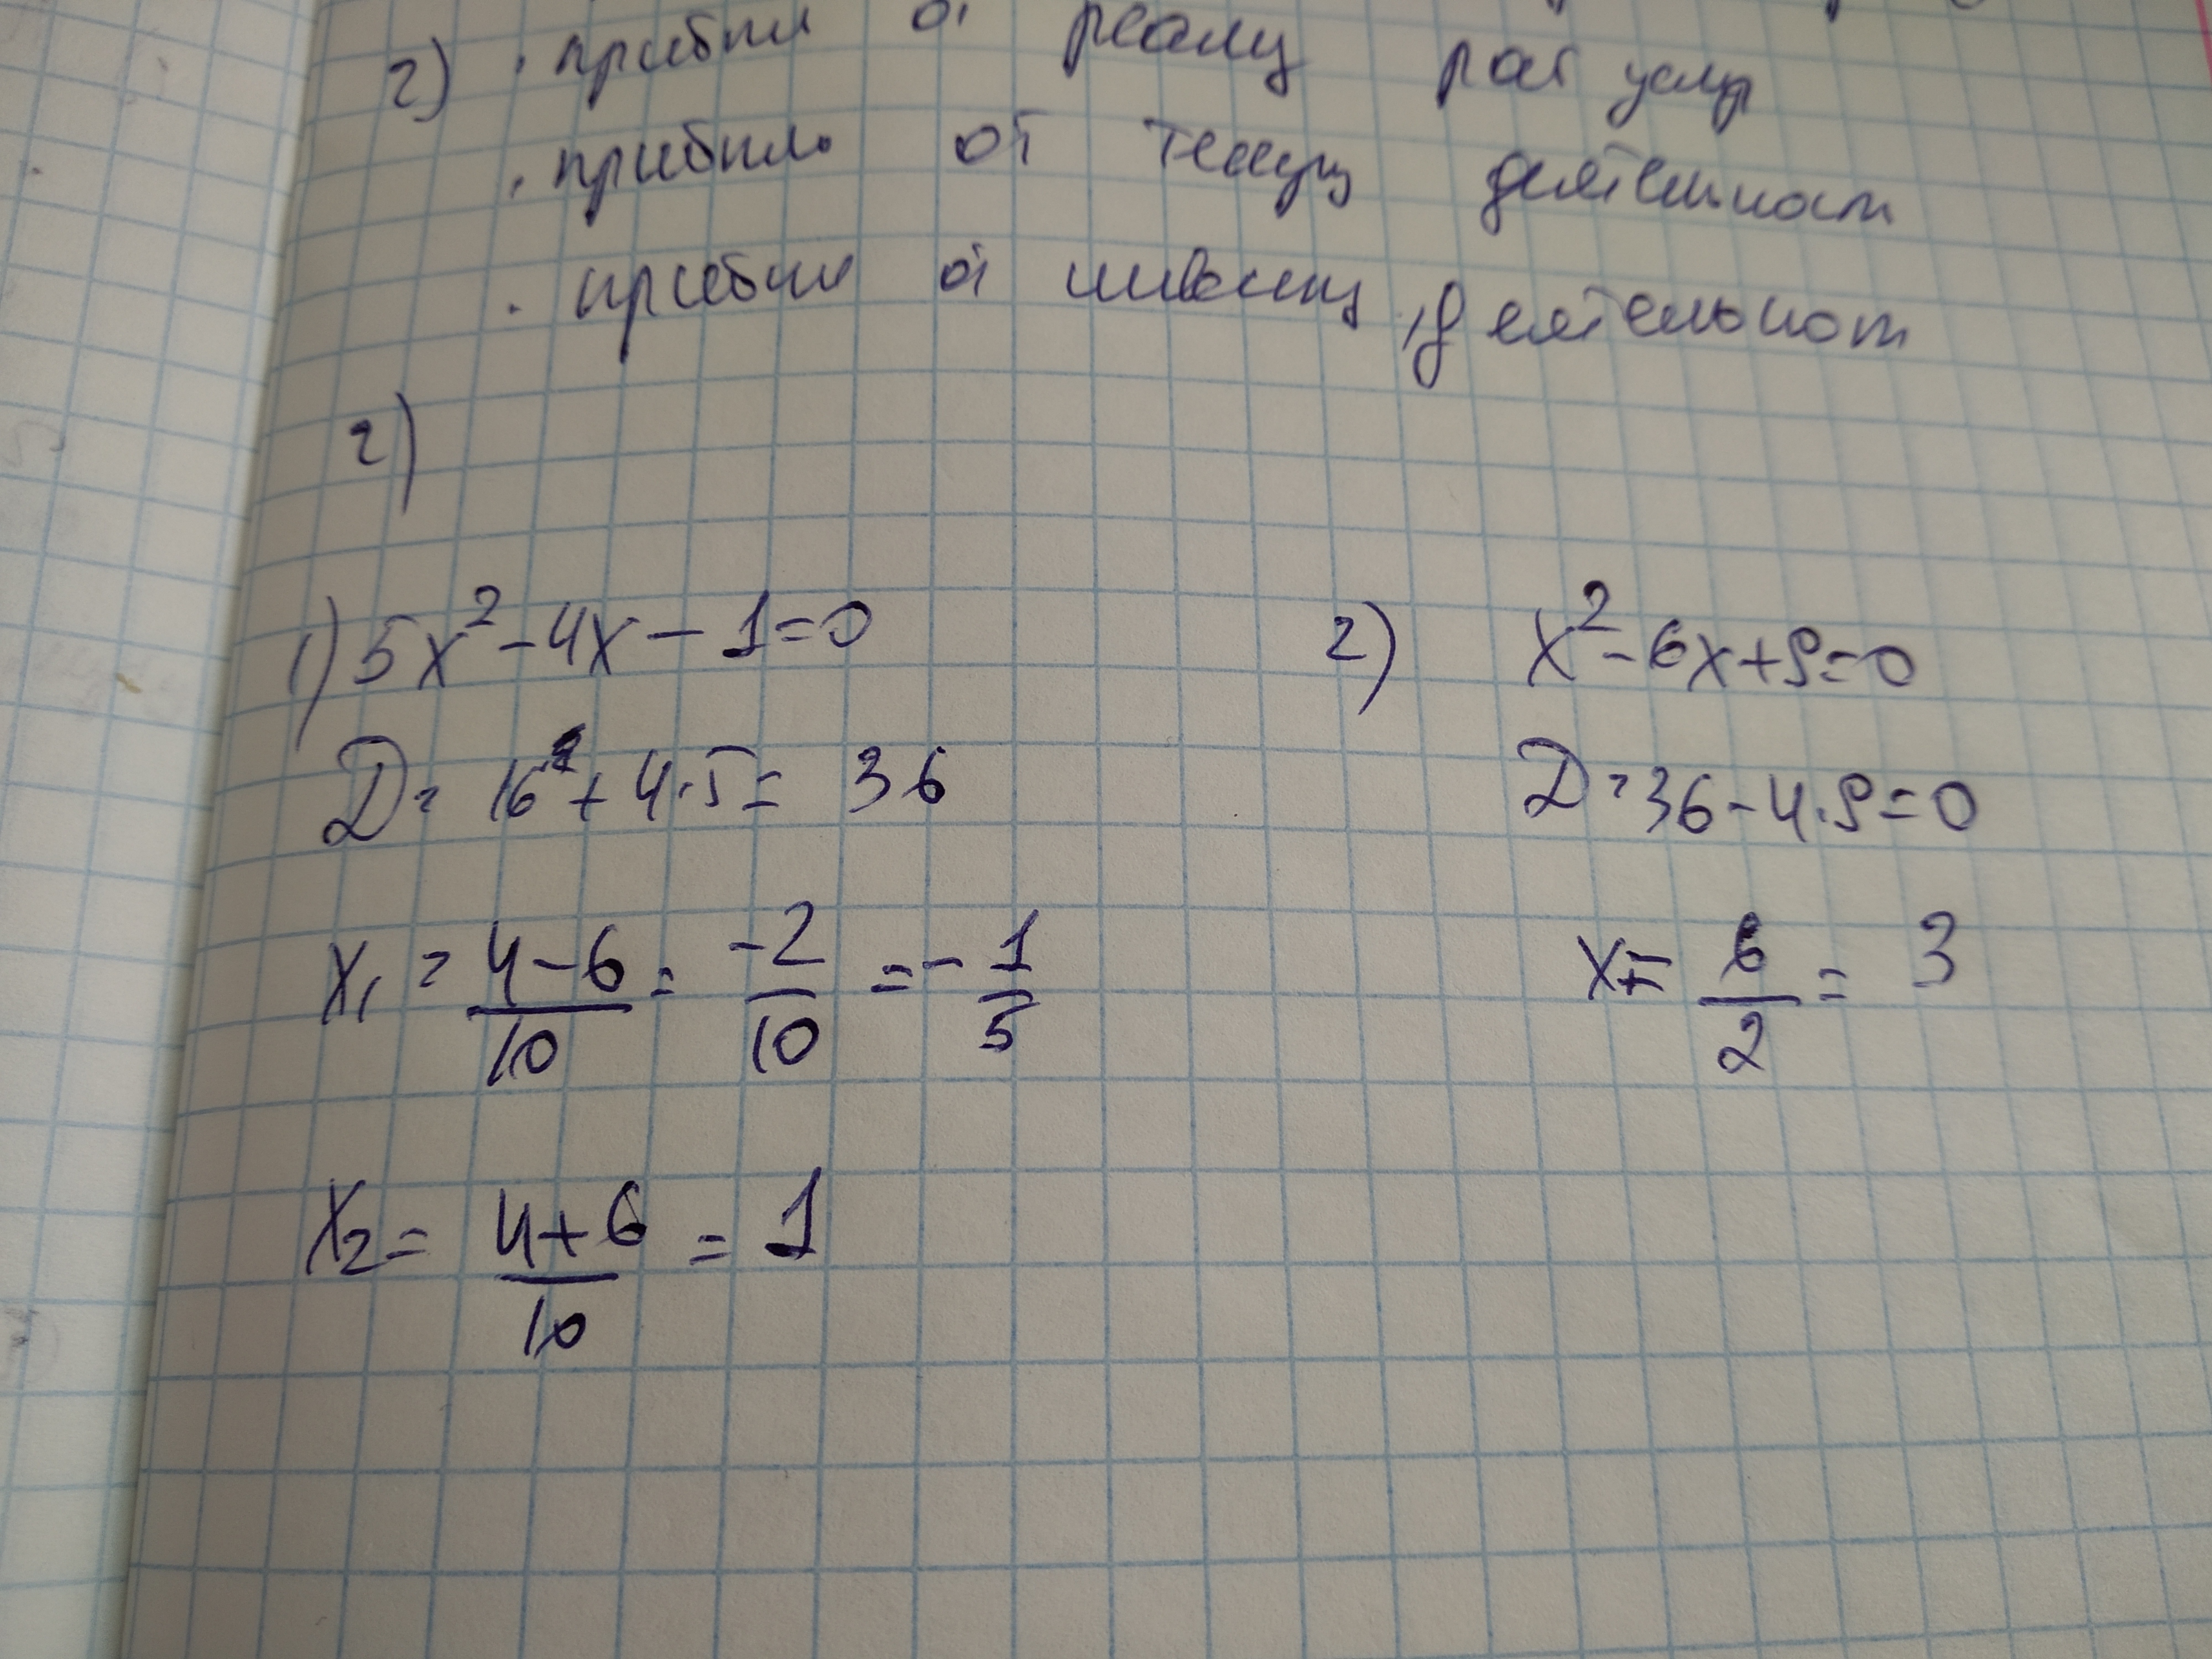 2) . прибыл от реализ рат услуг
. прибыль от текущ деятельност
. прибыл от инвестиц деятельност
2)
1) 5x² - 4x - 1 = 0
D = 16 + 4·5 = 36
x₁ = (4-6)/10 = -2/10 = -1/5
x₂ = (4+6)/10 = 1
2) x² - 6x + 9 = 0
D = 36 - 4·9 = 0
x = 6/2 = 3